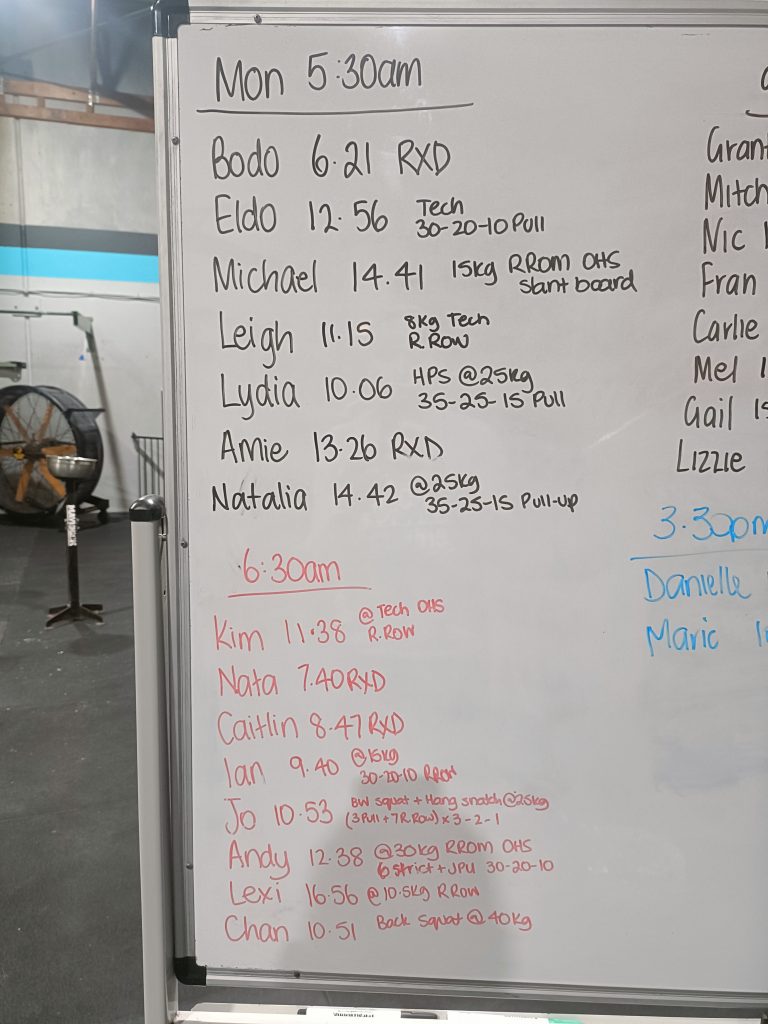 Mon 5:30am
Bodo 6.21 RXD
Eldo 12.56 Tech
30-20-10 Pull
Michael 14.41 15kg RROM OHS
slant board
Leigh 11.15 8kg Tech
R.Row
Lydia 10.06 HPS @25kg
35-25-15 Pull
Amie 13.26 RXD
Natalia 14.42 @25kg
35-25-15 Pull-up
6:30am
Kim 11.38 @Tech OHS
R.Row
Nata 7.40 RXD
Caitlin 8.47 RXD
Ian 9.40 @15kg
30-20-10 RRow
Jo 10.53 BW squat + Hang snatch @25kg
(3 Pull + 7 R.Row) x 3-2-1
Andy 12.38 @30kg RROM OHS
6 strict + JPU 30-20-10
Lexi 16.56 @10.5kg R Row
Chan 10.51 Back Squat @ 40kg
Grant
Mitch
Nic 1
Fran
Carlie
Mel 1
Gail 15
Lizzie
3.30pm
Danielle
Maric 1